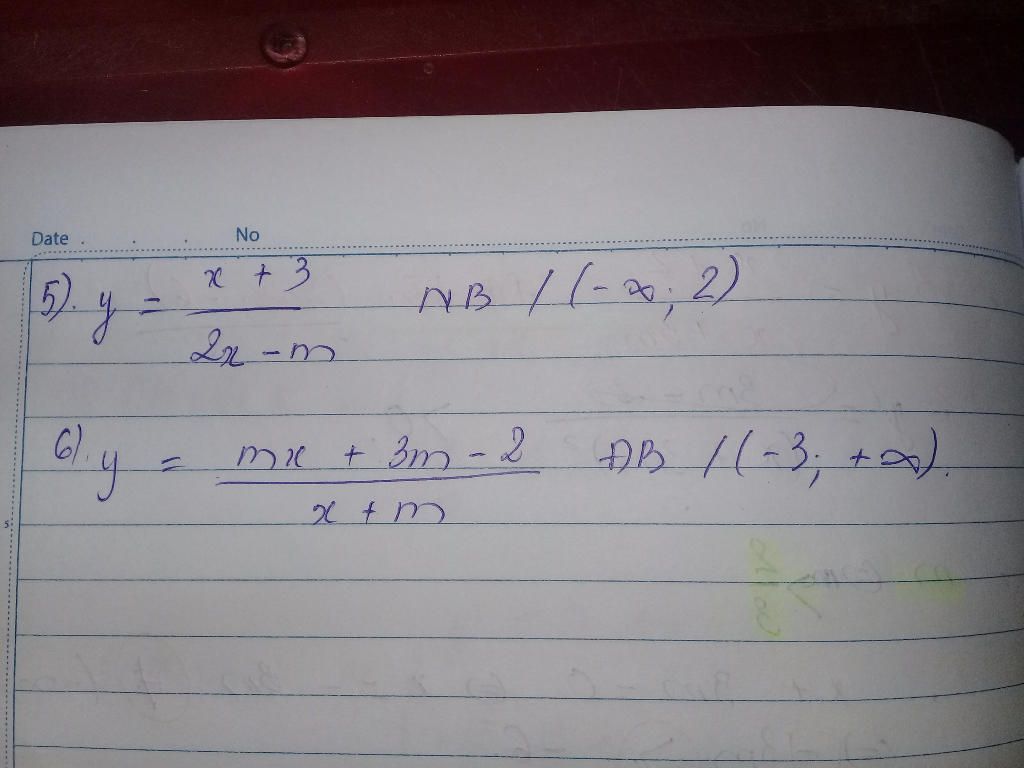 Date . . . No
5). y = (x + 3)/(2x - m) NB / (-∞; 2)
6). y = (mx + 3m - 2)/(x + m) ĐB / (-3; +∞).